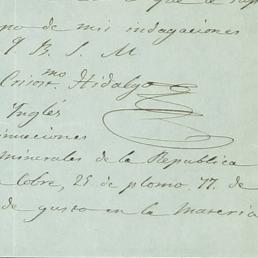 no de mis indagaciones
q B. S. M
Crisost.mo Hidalgo
Inglés
minerales de la Republica
Cobre, 25 de plomo. 77. de
de gusto en la materia